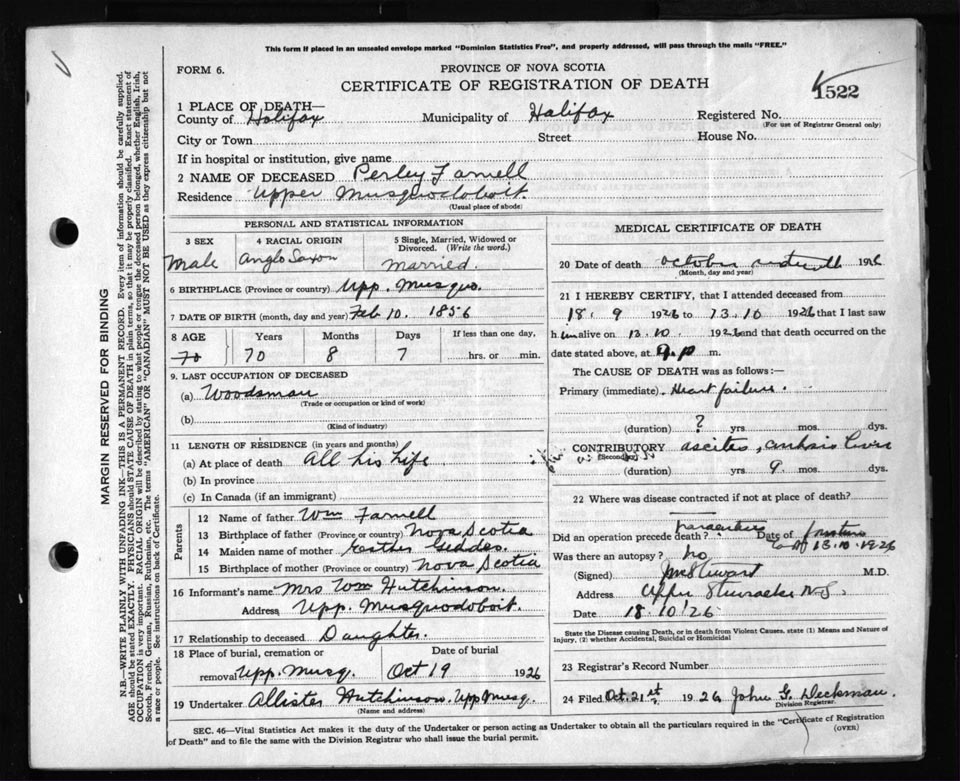 This form if placed in an unsealed envelope marked "Dominion Statistics Free", and properly addressed, will pass through the mails "FREE."
FORM 6.
PROVINCE OF NOVA SCOTIA
CERTIFICATE OF REGISTRATION OF DEATH
1522
1 PLACE OF DEATH—
County of Halifax Municipality of Halifax Registered No.
(For use of Registrar General only)
City or Town Street House No.
If in hospital or institution, give name
2 NAME OF DECEASED Perley Farnell
Residence Upper Musquodoboit.
(Usual place of abode)
PERSONAL AND STATISTICAL INFORMATION
3 SEX 4 RACIAL ORIGIN 5 Single, Married, Widowed or Divorced. (Write the word.)
Male Anglo Saxon Married.
6 BIRTHPLACE (Province or country) Upp. Musquo.
7 DATE OF BIRTH (month, day and year) Feb 10. 1856
8 AGE Years Months Days If less than one day,
70 70 8 7 hrs. or min.
9. LAST OCCUPATION OF DECEASED
(a) Woodsman
(Trade or occupation or kind of work)
(b)
(Kind of industry)
11 LENGTH OF RESIDENCE (in years and months)
(a) At place of death All his life
(b) In province
(c) In Canada (if an immigrant)
Parents
12 Name of father Wm Farnell
13 Birthplace of father (Province or country) Nova Scotia
14 Maiden name of mother Esther Geddes.
15 Birthplace of mother (Province or country) Nova Scotia
16 Informant's name Mrs Wm Hutchinson.
Address Upp. Musquodoboit.
17 Relationship to deceased Daughter.
18 Place of burial, cremation or removal Upp. Musq. Date of burial Oct 19 1926
19 Undertaker Allister Hutchinson, Upp Musq.
(Name and address)
MEDICAL CERTIFICATE OF DEATH
20 Date of death October 192
(Month, day and year)
21 I HEREBY CERTIFY, that I attended deceased from
18. 9 1926 to 13.10 1926 that I last saw
h im alive on 13.10. 1926 and that death occurred on
date stated above, at m.
The CAUSE OF DEATH was as follows:—
Primary (immediate). Heart failure.
(duration) ? yrs. mos. dys.
CONTRIBUTORY ascites, liver
(Secondary)
(duration) yrs. 9. mos. dys.
22 Where was disease contracted if not at place of death?
Did an operation precede death? Date of
13.10.1926
Was there an autopsy? No
(Signed) M.D.
Address Upper N.S.
Date 18.10.'26
State the Disease causing Death, or in death from Violent Causes, state (1) Means and Nature of Injury, (2) whether Accidental, Suicidal or Homicidal
23 Registrar's Record Number
24 Filed Oct. 21st 1926 John G. Deckman.
Division Registrar.
SEC. 46—Vital Statistics Act makes it the duty of the Undertaker or person acting as Undertaker to obtain all the particulars required in the "Certificate of Registration
of Death" and to file the same with the Division Registrar who shall issue the burial permit.
(OVER)
MARGIN RESERVED FOR BINDING
N.B.—WRITE PLAINLY WITH UNFADING INK—THIS IS A PERMANENT RECORD. Every item of information should be carefully supplied.
AGE should be stated EXACTLY. PHYSICIANS should STATE CAUSE OF DEATH in plain terms, so that it may be properly classified. Exact statement of
OCCUPATION is very important. RACIAL ORIGIN will be described by stating to what people or tongue the deceased person belonged, whether English, Irish,
Scotch, French, German, Russian, Ruthenian, etc. The terms "AMERICAN" OR "CANADIAN" MUST NOT BE USED as they express citizenship but not
a race or people. See instructions on back of Certificate.